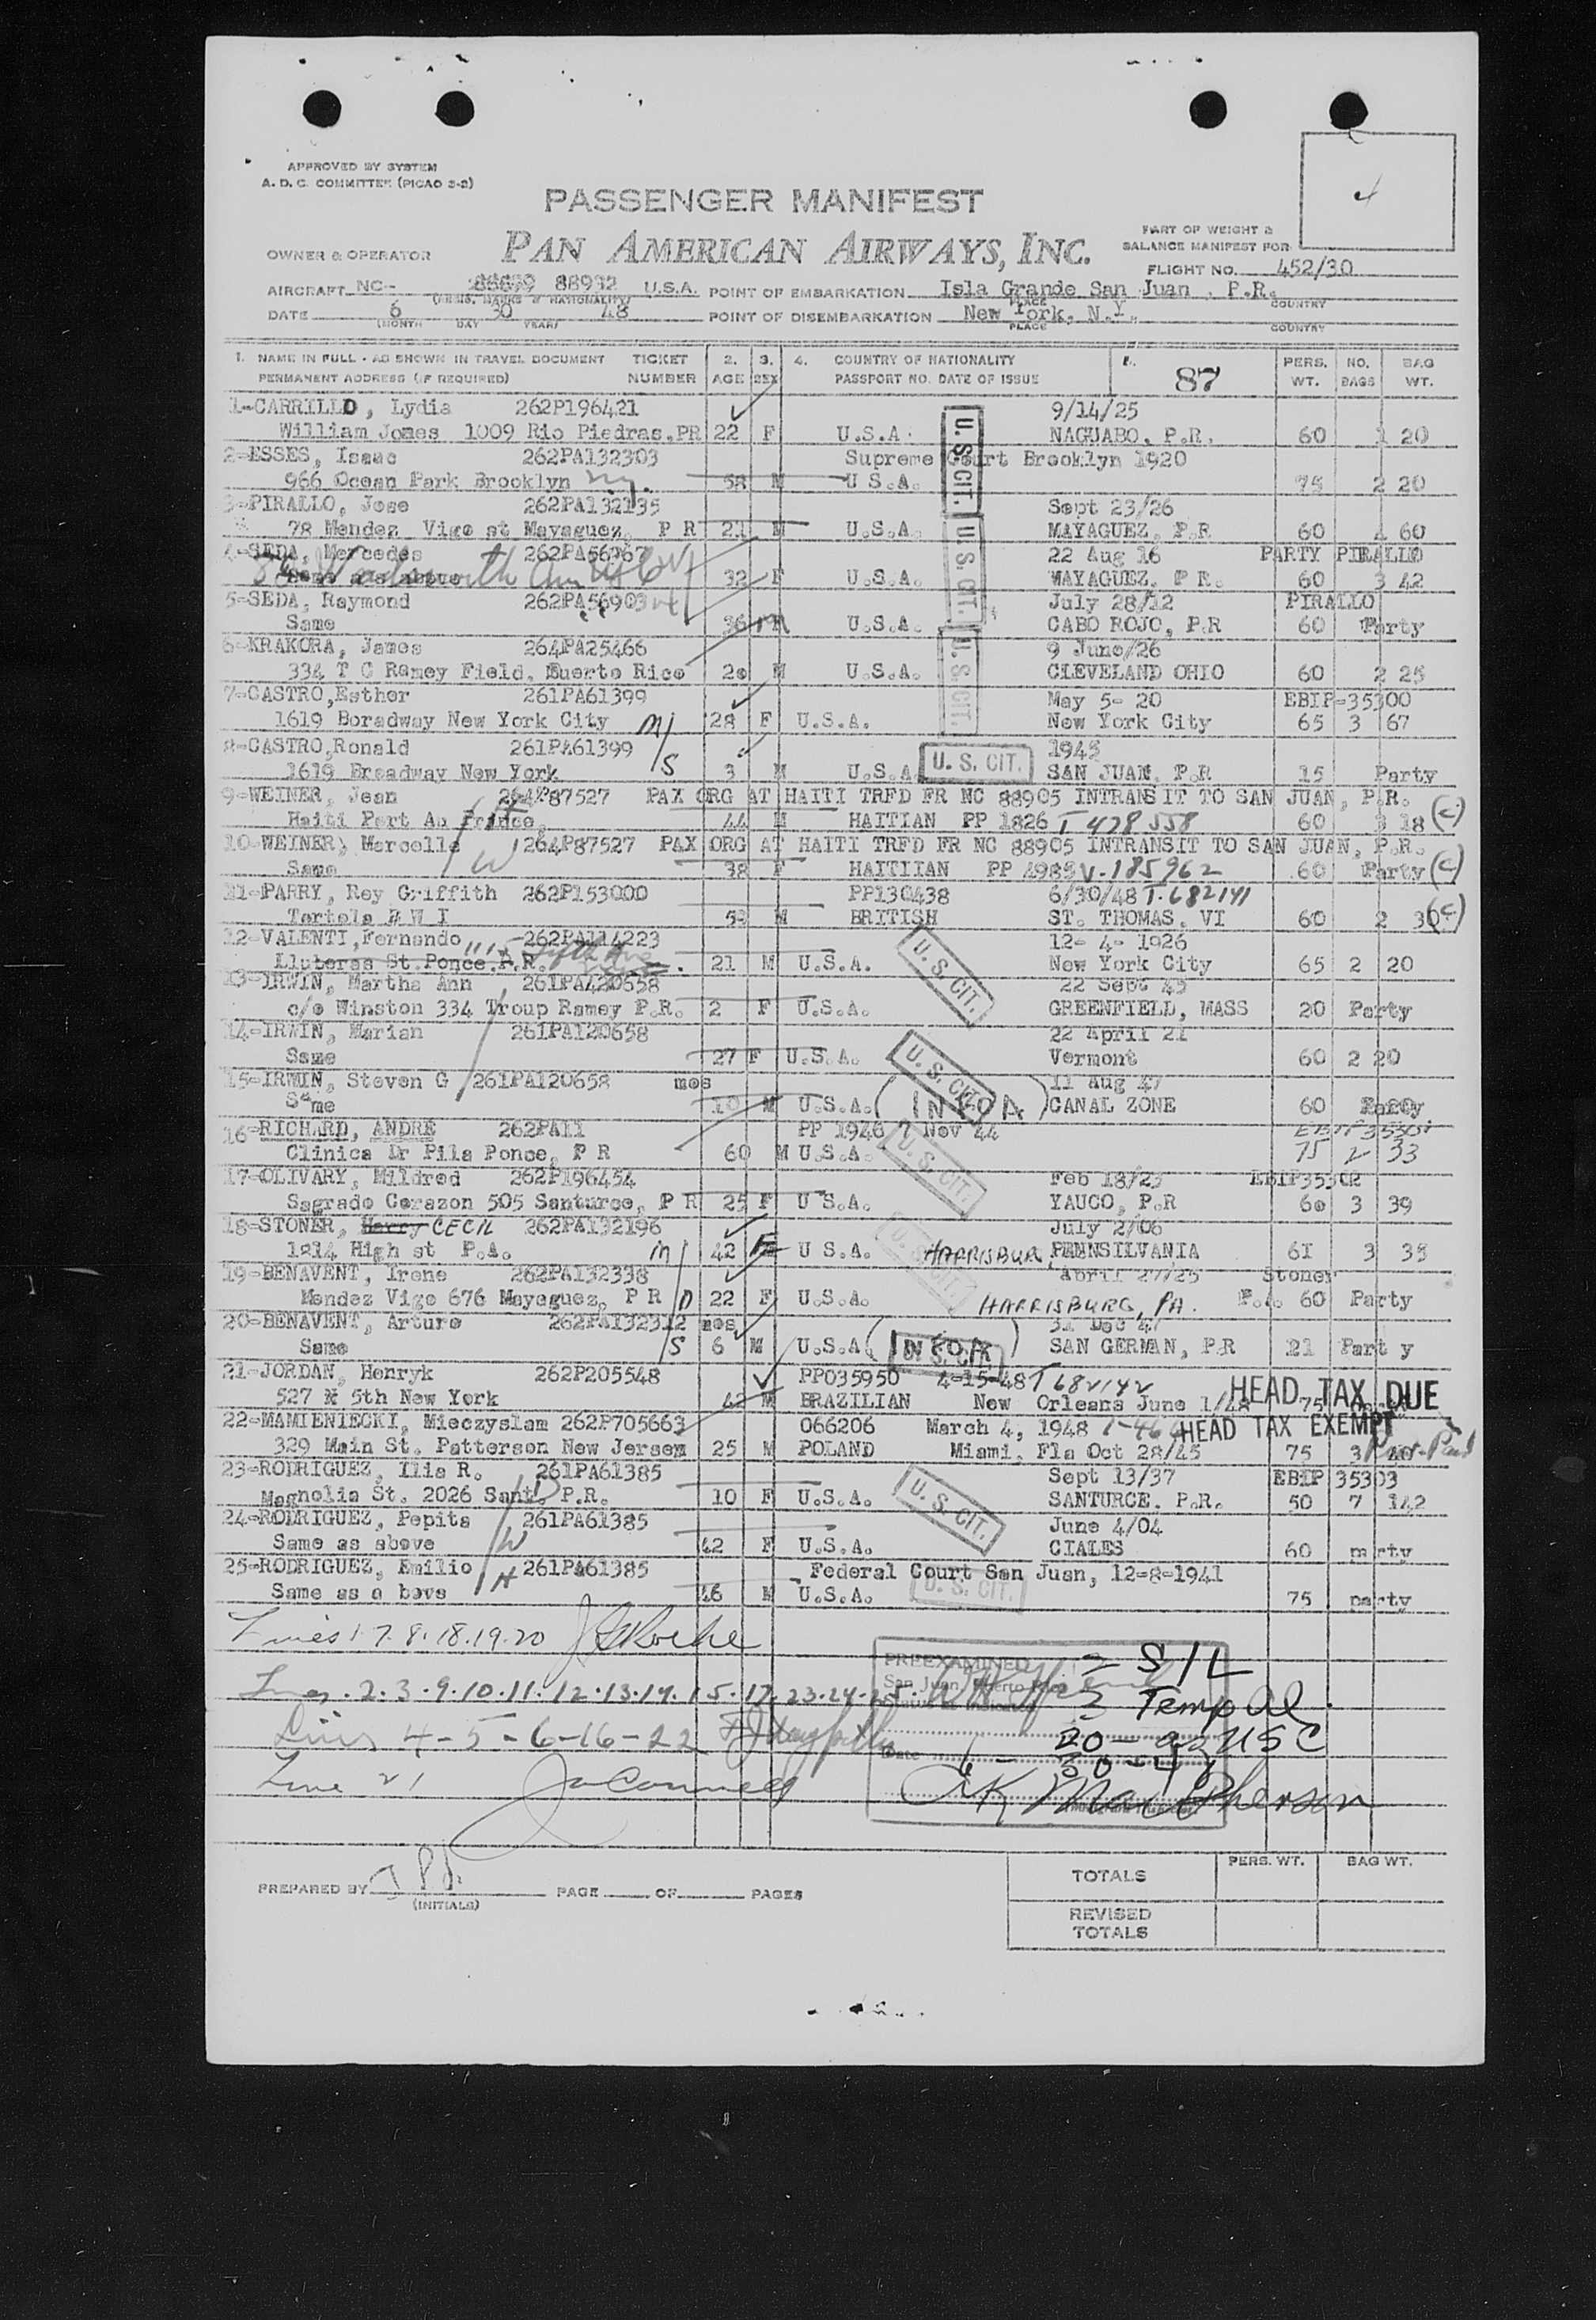 APPROVED BY SYSTEM
A. D. C. COMMITTEE (PICAO 2-2)
4
PASSENGER MANIFEST
PAN AMERICAN AIRWAYS, INC.
PART OF WEIGHT &
BALANCE MANIFEST FOR
OWNER & OPERATOR
FLIGHT NO. 452/30
AIRCRAFT NC- 88932 U.S.A. POINT OF EMBARKATION Isla Grande San Juan . P.R.
(REGIS. MARKS & NATIONALITY) PLACE COUNTRY
DATE 6 30 48 POINT OF DISEMBARKATION New York, N.Y.
(MONTH DAY YEAR) PLACE COUNTRY
1. NAME IN FULL - AS SHOWN IN TRAVEL DOCUMENT TICKET 2. 3. 4. COUNTRY OF NATIONALITY 5. PERS. NO. BAG
PERMANENT ADDRESS (IF REQUIRED) NUMBER AGE SEX PASSPORT NO. DATE OF ISSUE 87 WT. BAGS WT.
1-CARRILLO, Lydia 262P196421 9/14/25
William Jomes 1009 Rio Piedras.PR 22 F U.S.A. NAGUABO, P.R. 60 1 20
2-ESSES, Isaac 262PA132303 Supreme Court Brooklyn 1920
966 Ocean Park Brooklyn N.Y. 58 M U S.A. 75 2 20
3-PIRALLO, Jose 262PA132135 Sept 23/26
78 Mendez Vigo st Mayaguez, P R 21 M U.S.A. MAYAGUEZ, P.R 60 60
4-SEDA, Mercedes 262PA56967 22 Aug 16 PARTY PIRALLO
Same as above Wadsworth 32 F U.S.A. MAYAGUEZ, P R. 60 3 42
5-SEDA, Raymond 262PA56903 July 28/12 PIRALLO
Same 36 M U.S.A. CABO ROJO, P.R 60 Party
6-KRAKORA, James 264PA25466 9 June/26
334 T C Ramey Field, Puerto Rico M U.S.A. CLEVELAND OHIO 60 2 25
7-CASTRO,Esther 261PA61399 May 5- 20 EBIP-35300
1619 Boradway New York City M/ 28 F U.S.A. New York City 65 3 67
8-CASTRO,Ronald 261PA61399 1945
1619 Broadway New York /S 3 M U.S.A U. S. CIT. SAN JUAN, P.R 15 Party
9-WEINER, Jean 264P87527 PAX ORG AT HAITI TRFD FR NC 88905 INTRANSIT TO SAN JUAN, P.R.
Haiti Port Au Prince, 44 M HAITIAN PP 1826 T 478558 60 3 18 (c)
10-WEINER, Marcelle W 264P87527 PAX ORG AT HAITI TRFD FR NC 88905 INTRANSIT TO SAN JUAN, P.R.
Same 38 F HAITIIAN PP 4985 V-185962 60 Party (c)
11-PARRY, Roy Griffith 262P153000 PP130438 6/30/48 T.682141
Tortola B W I M BRITISH ST. THOMAS, VI 60 2 30 (c)
12-VALENTI,Fernando 262PA114223 12- 4- 1926
Lluberas St.Ponce.P.R. 21 M U.S.A. New York City 65 2 20
13-IRWIN, Martha Ann 261PA120658 22 Sept 45
c/o Winston 334 Troup Ramey P.R. 2 F U.S.A. GREENFIELD, MASS 20 Party
14-IRWIN, Marian 261PA120658 22 April 21
Same 27 F U.S.A. Vermont 60 2 20
15-IRWIN, Steven G 261PA120658 mos 11 Aug 47
Same 10 M U.S.A. CANAL ZONE 60 Party
16-RICHARD, ANDRE 262PA11 PP 1946 7 Nov 44
Clinica Dr Pila Ponce, P R 60 M U.S.A. 75 2 33
17-OLIVARY, Mildred 262P196454 Feb 18/23 EBIP35302
Sagrado Corazon 505 Santurce, P R 25 F U S.A. YAUCO, P.R 60 3 39
18-STONER, Harry CECIL 262PA132196 July 2/06
1814 High st P.A. M/ 42 F U S.A. HARRISBURG PENNSILVANIA 61 3 35
19-BENAVENT, Irene 262PA132338 April 27/25 Stoner
Mendez Vigo 676 Mayaguez, P R /D 22 F U.S.A. HARRISBURG, PA. 60 Party
20-BENAVENT, Arturo 262PA132312 mos 31 Dec 47
Same /S 6 M U.S.A SAN GERMAN, P.R 21 Party
21-JORDAN, Henryk 262P205548 PP035950 4-15-48 T682142
527 5th New York 42 M BRAZILIAN New Orleans June 1/48 75 HEAD TAX DUE
22-MAMIENIECKI, Mieczyslam 262P705663 066206 March 4, 1948 HEAD TAX EXEMPT
329 Main St. Patterson New Jersem 25 M POLAND Miami, Fla Oct 28/45 75 3 40
23-RODRIGUEZ, Ilia R. 261PA61385 Sept 13/37 EBIP 35303
Magnolia St. 2026 Sant. P.R. 10 F U.S.A. U. S. CIT. SANTURCE. P.R. 50 7 142
24-RODRIGUEZ, Pepita 261PA61385 June 4/04
Same as above /W 42 F U.S.A. CIALES 60 party
25-RODRIGUEZ, Emilio 261PA61385 Federal Court San Juan, 12-8-1941
Same as a bove /H 46 M U.S.A. U. S. CIT. 75 party
Lines 1-7.8.18.19.20
Lines.2.3.9.10.11.12.13.14.15.17.23.24.25.
Lines 4-5-6-16-22
Line 21
PREEXAMINED
San Juan, Puerto Rico
2 S/L
3 Temp Al.
20 USC
Date 6-30-48
MacPherson
PREPARED BY
(INITIALS)
PAGE OF PAGES
PERS. WT. BAG WT.
TOTALS
REVISED
TOTALS